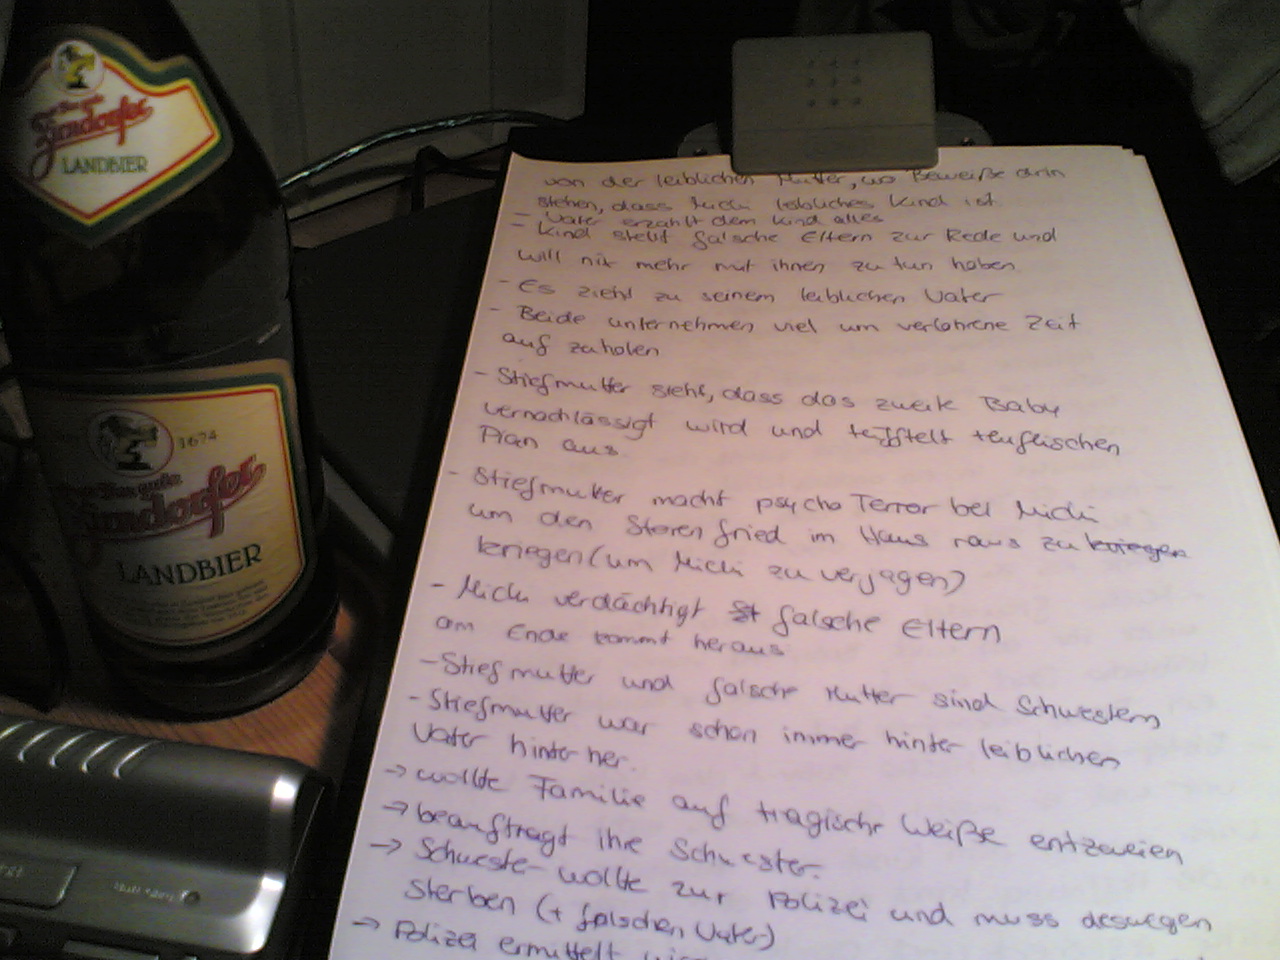 Zirndorfer
LANDBIER
1674
Zirndorfer
LANDBIER
von der leiblichen Mutter, wo Beweiße drin
stehen, dass Michi leibliches Kind ist
- Vater erzählt dem Kind alles
- Kind stellt falsche Eltern zur Rede und
will nix mehr mit ihnen zu tun haben
- Es zieht zu seinem leiblichen Vater
- Beide unternehmen viel um verlohrene Zeit
auf zuholen
- Stiefmutter sieht, dass das zweite Baby
vernachlässigt wird und teuflischen
Plan aus
- Stiefmutter macht psycho Terror bei Michi
um den Störenfried im Haus raus zu kriegen
kriegen (um Michi zu verjagen)
- Michi verdächtigt falsche Eltern
am Ende kommt heraus
- Stiefmutter und falsche Mutter sind Schwestern
- Stiefmutter war schon immer hinter leiblichen
Vater hinterher.
→ wollte Familie auf tragische Weiße entzweien
→ beauftragt ihre Schwester.
→ Schwester wollte zur Polizei und muss deswegen
sterben (+ falschen Vater)
→ Polizei ermittelt